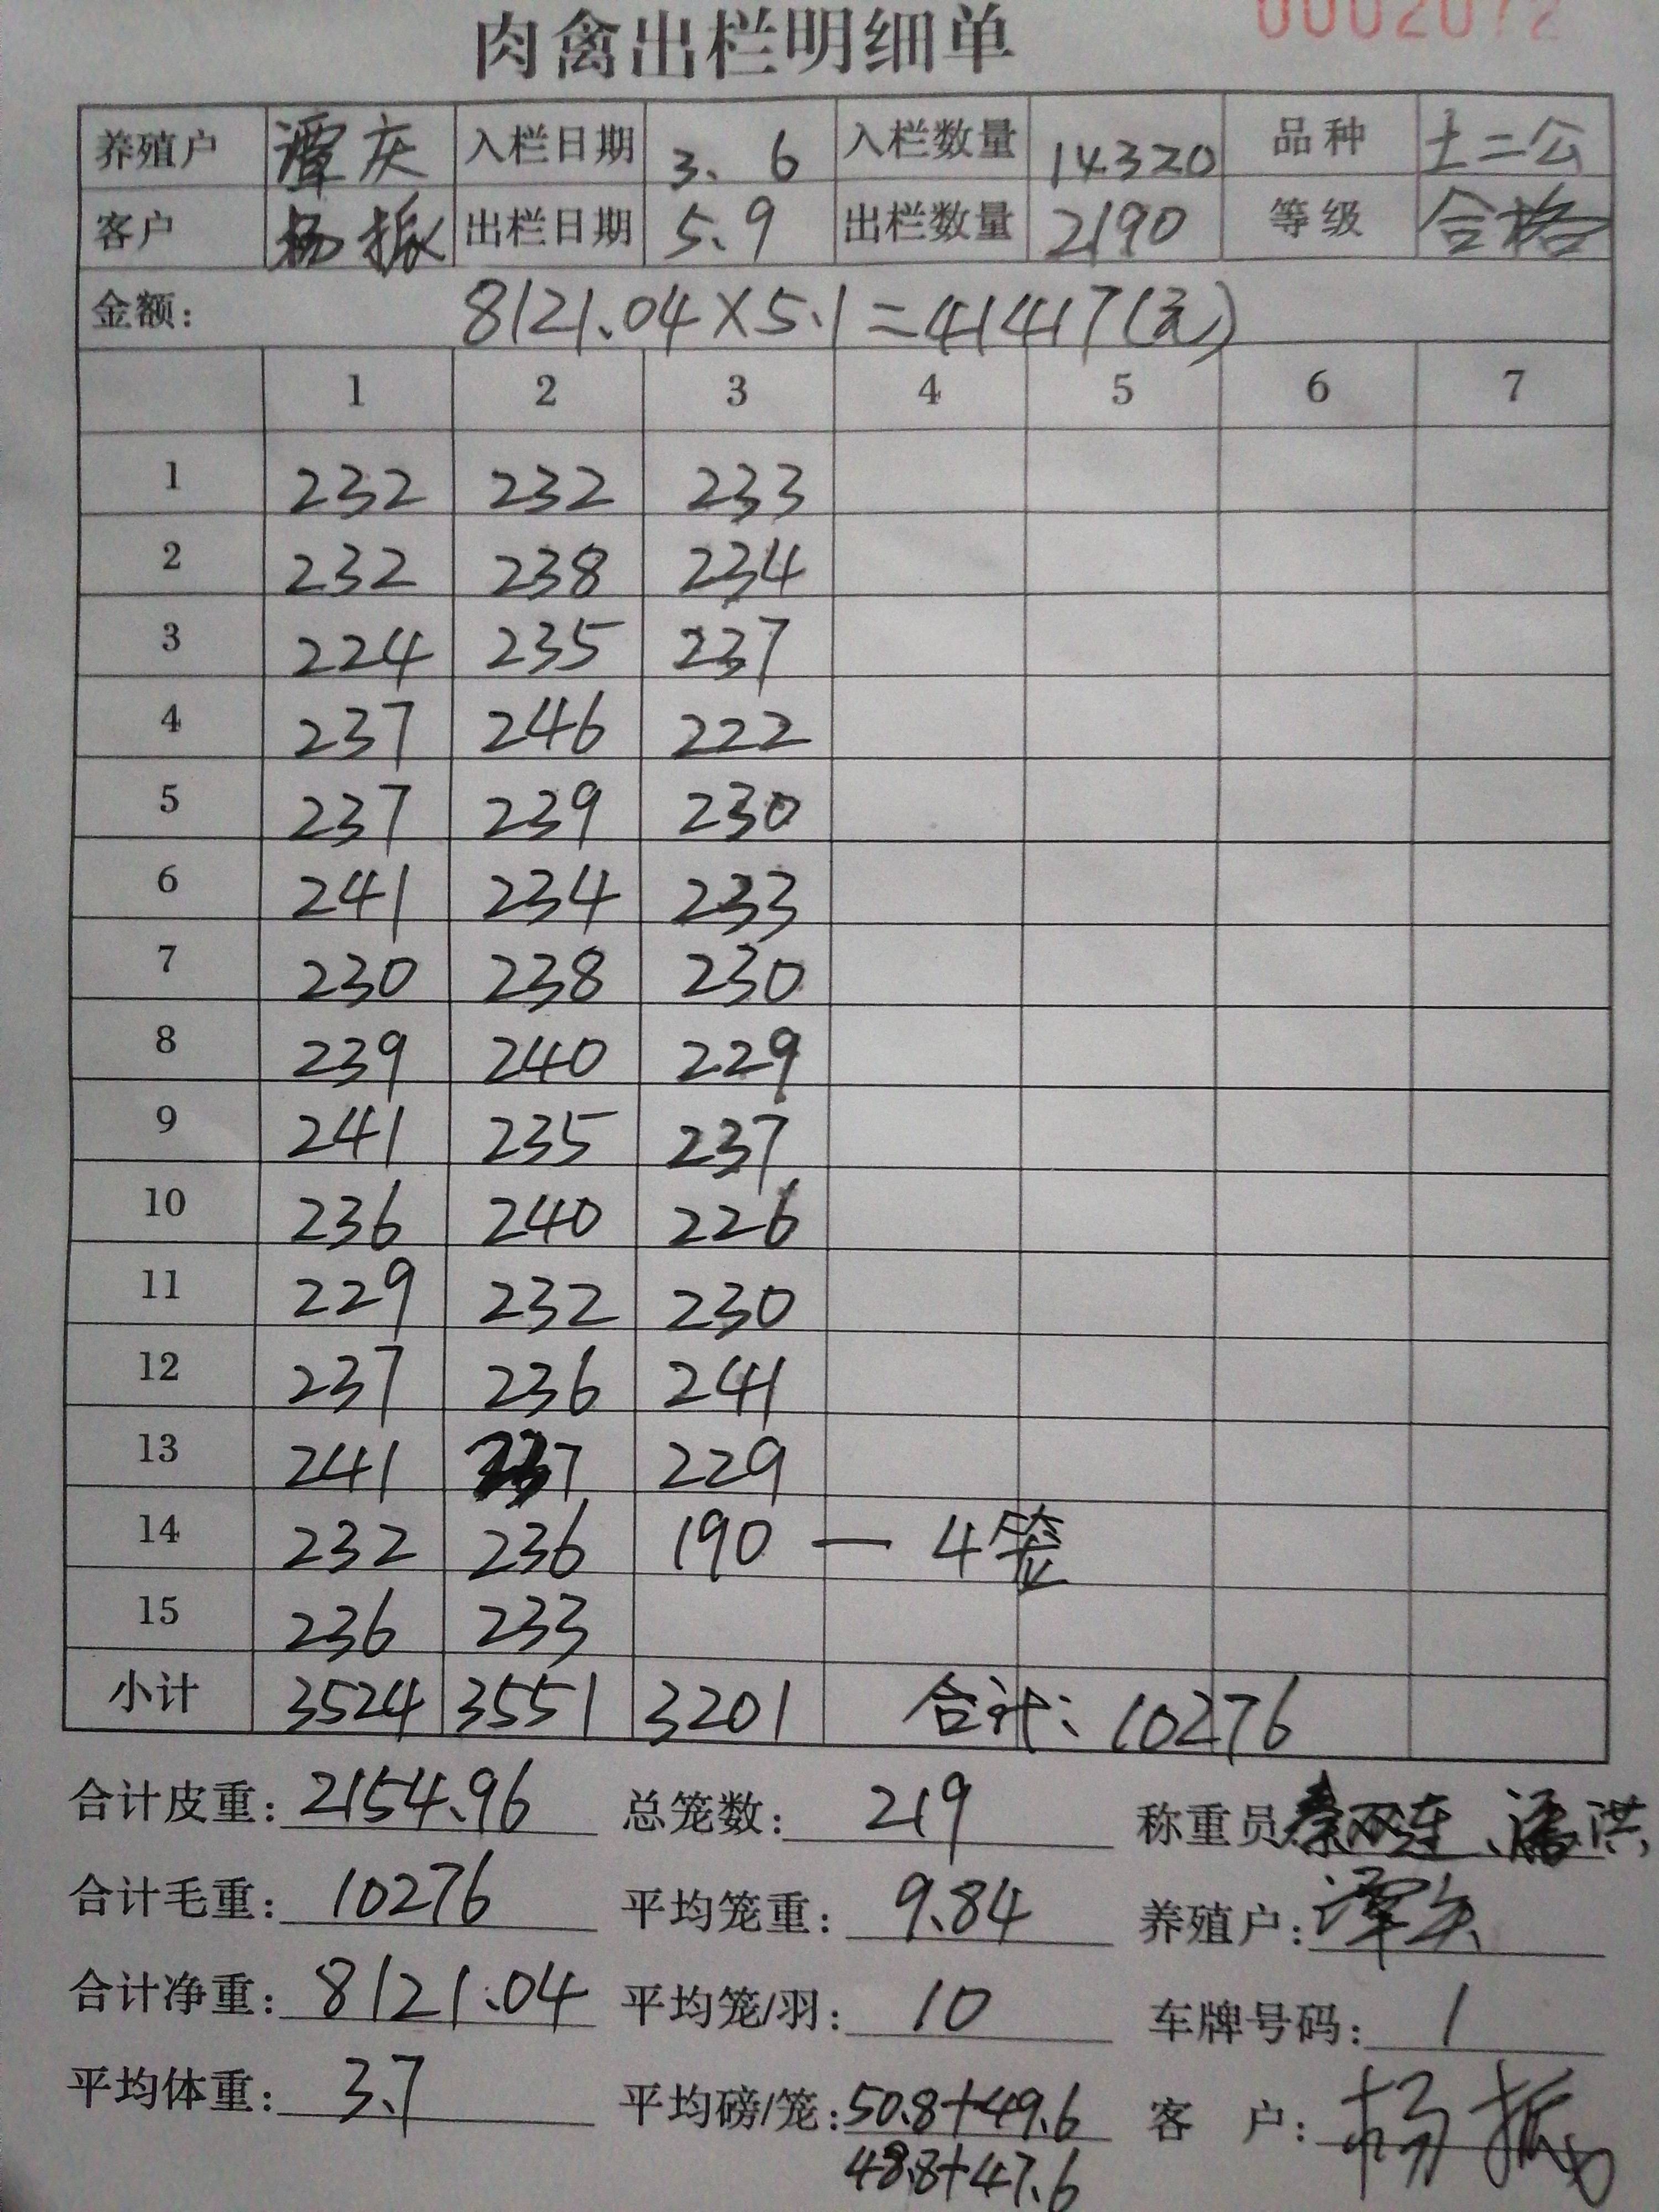 肉禽出栏明细单 0002072
养殖户 谭庆 入栏日期 3.6 入栏数量 14320 品种 土二公
客户 杨振 出栏日期 5.9 出栏数量 2190 等级 合格
金额: 8121.04×5.1=41417(元)
1 2 3 4 5 6 7
1 232 232 233
2 232 238 234
3 224 235 237
4 237 246 222
5 237 239 230
6 241 234 233
7 230 238 230
8 239 240 229
9 241 235 237
10 236 240 226
11 229 232 230
12 237 236 241
13 241 237 229
14 232 236 190 — 4笼
15 236 233
小计 3524 3551 3201 合计: 10276
合计皮重: 2154.96 总笼数: 219 称重员 秦双连、潘洪
合计毛重: 10276 平均笼重: 9.84 养殖户: 谭庆
合计净重: 8121.04 平均笼/羽: 10 车牌号码: 1
平均体重: 3.7 平均磅/笼: 50.8+49.6 客 户: 杨振
48.8+47.6